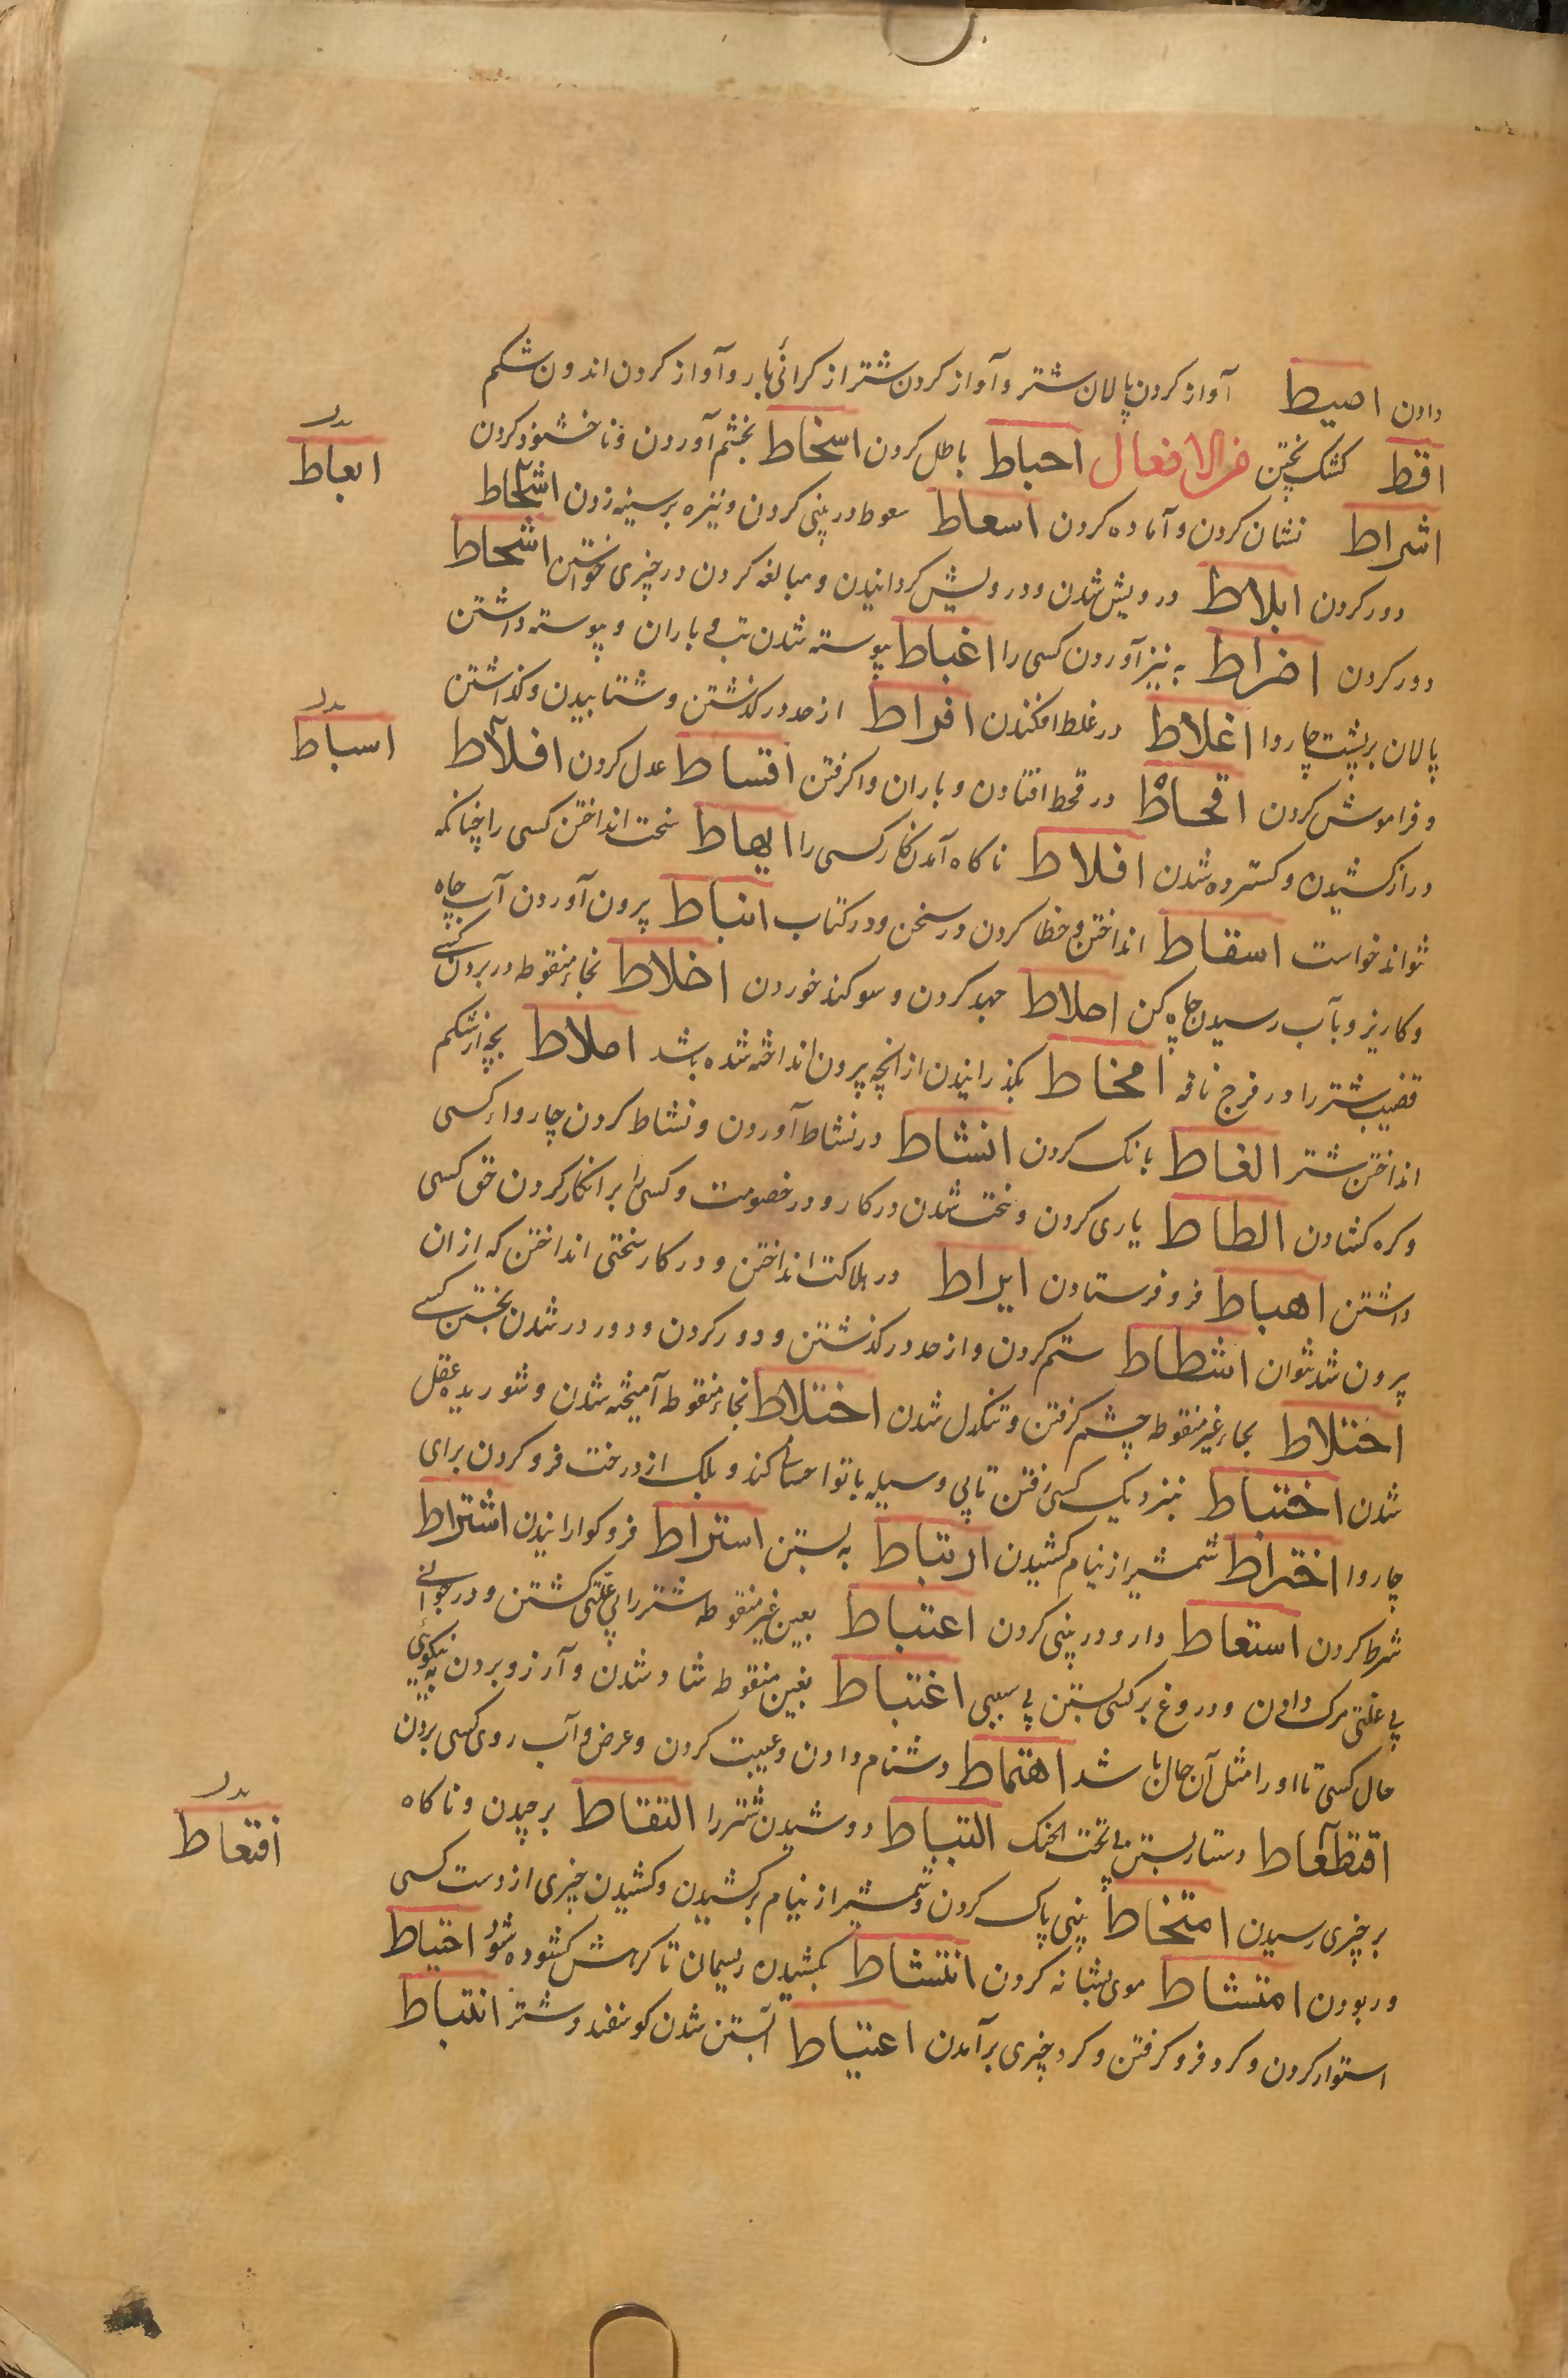 دادن اصیط آواز کردن پالان شتر و آواز کردن شتر از کرانئ بار و آواز کردن اندرون شکم
اقط کشک پختن من الافعال احباط باطل کردن اسخاط بخشم آوردن و ناخشنود کردن
ابعاط
اشراط نشان کردن و آماده کردن اسعاط سعوط در بینی کردن و نیزه بر سینه زدن اشطاط
دور کردن ابلاط درویش شدن و درویش کردانیدن و مبالغه کردن در چیزی خواستن اشحاط
دور کردن اضراط به تیز آوردن کسی را اغباط پیوسته شدن تب و باران و پیوسته داشتن
پالان بر پشت چاروا اغلاط در غلط افکندن افراط از حد در کذشتن و شتابیدن و کذاشتن
اسباط
و فراموش کردن اقحاط در قحط افتادن و باران واکرفتن اقساط عدل کردن افلاط
دراز کشیدن و کسترده شدن افلاط ناکاه آمدن کار کسی را ایهاط سخت انداختن کسی را چنانکه
نتواند خواست اسقاط انداختن و خطا کردن در سخن و در کتاب انباط بیرون آوردن آب چاه
و کاریز و بآب رسیدن چاه کن احلاط جهد کردن و سوکند خوردن اخلاط بخاء منقوطه در بردن کسی
قضیب شتر را در فرج ناقه امخاط بکذرانیدن از آنچه بیرون انداخته شده باشد املاط بچه از شکم
انداختن شتر الغاط بانک کردن انشاط در نشاط آوردن و نشاط کردن چاروا کسی
و کره کشادن الطاط یاری کردن و سخت شدن در کار و در خصومت و کسی را بر انکار کردن حق کسی
داشتن اهباط فرو فرستادن ایراط در هلاکت انداختن و در کار سختی انداختن که از ان
بیرون شد نتوان اشطاط ستم کردن و از حد در کذشتن و دور کردن و دور در شدن بجستن کسی
احتلاط بحاء غیر منقوطه چشم کرفتن و تنکدل شدن اختلاط بخاء منقوطه آمیخته شدن و شوریده عقل
شدن اختباط بنزدیک کسی رفتن تا بی وسیله با تو احسان کند و بلک از درخت فرو کردن برای
چاروا اختراط شمشیر از نیام کشیدن ارتباط به بستن استراط فرو کوارانیدن اشتراط
شرط کردن استعاط دارو در بینی کردن اعتباط بعین غیر منقوطه شتر را بی علتی کشتن و در جوانی
بی علتی مرک دادن و دروغ بر کسی بستن بی سببی اغتباط بغین منقوطه شاد شدن و آرزو بردن به نیکویی
حال کسی تا او را مثل آن حال باشد اهتماط دشنام دادن و عیبت کردن و عرض و آب روی کسی بردن
اقتعاط
اقتطعاط دستار بستن بی تحت الحنک التباط دوشیدن شتر را التقاط برچیدن و ناکاه
بر چیزی رسیدن امتخاط بینی پاک کردن و شمشیر از نیام بر کشیدن و کشیدن چیزی از دست کسی
و ربودن امتشاط موی بشانه کردن انتشاط بکشیدن ریسمان تا کرهش کشوده شود احتیاط
استوار کردن و کرد فرو کرفتن و کرد چیزی برآمدن اعتیاط آبستن شدن کوسفند و شتر انتباط